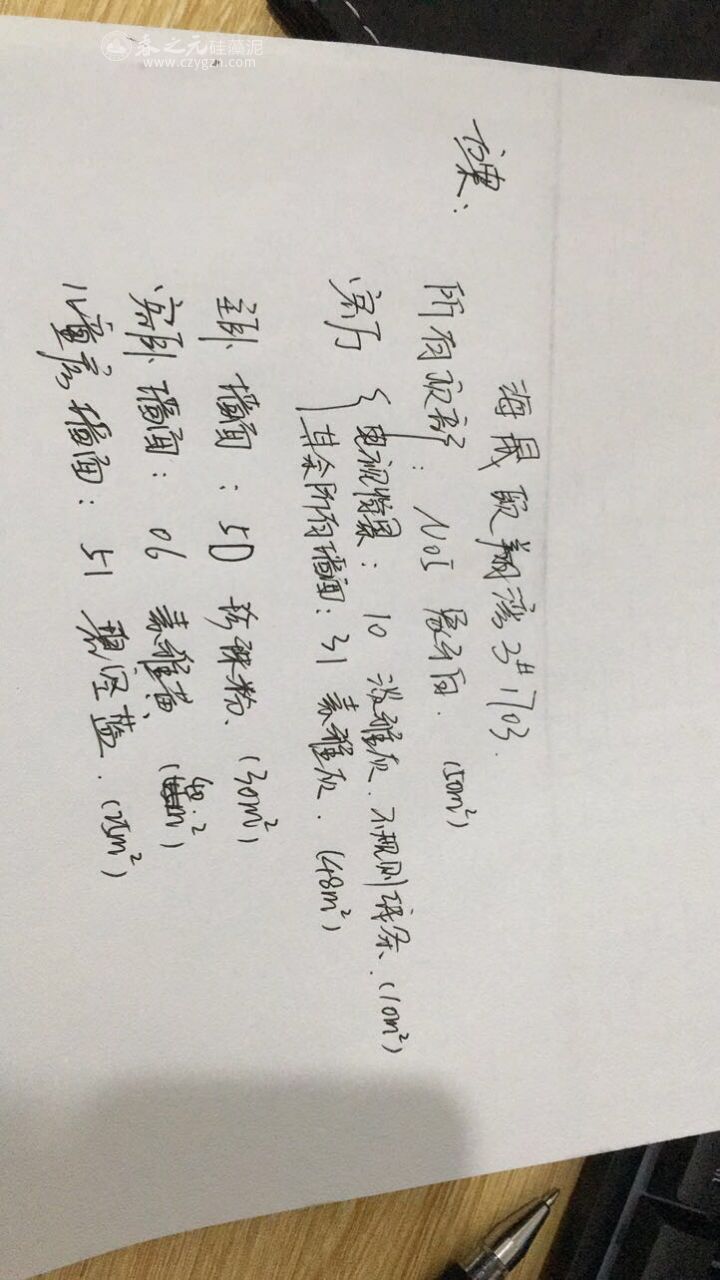 春之元硅藻泥
www.czygzn.com
海晟 翔湾3#1703.
所有顶部: N05 象牙白. (50m²)
客厅 { 电视背景: 10 淡雅灰. 不规则 (10m²)
其余所有墙面: 31 素雅灰. (48m²)
主卧 墙面: 50 珍珠粉. (30m²)
客卧 墙面: 06 素雅黄 (40m²)
儿童房墙面: 51 碧空蓝. (25m²)